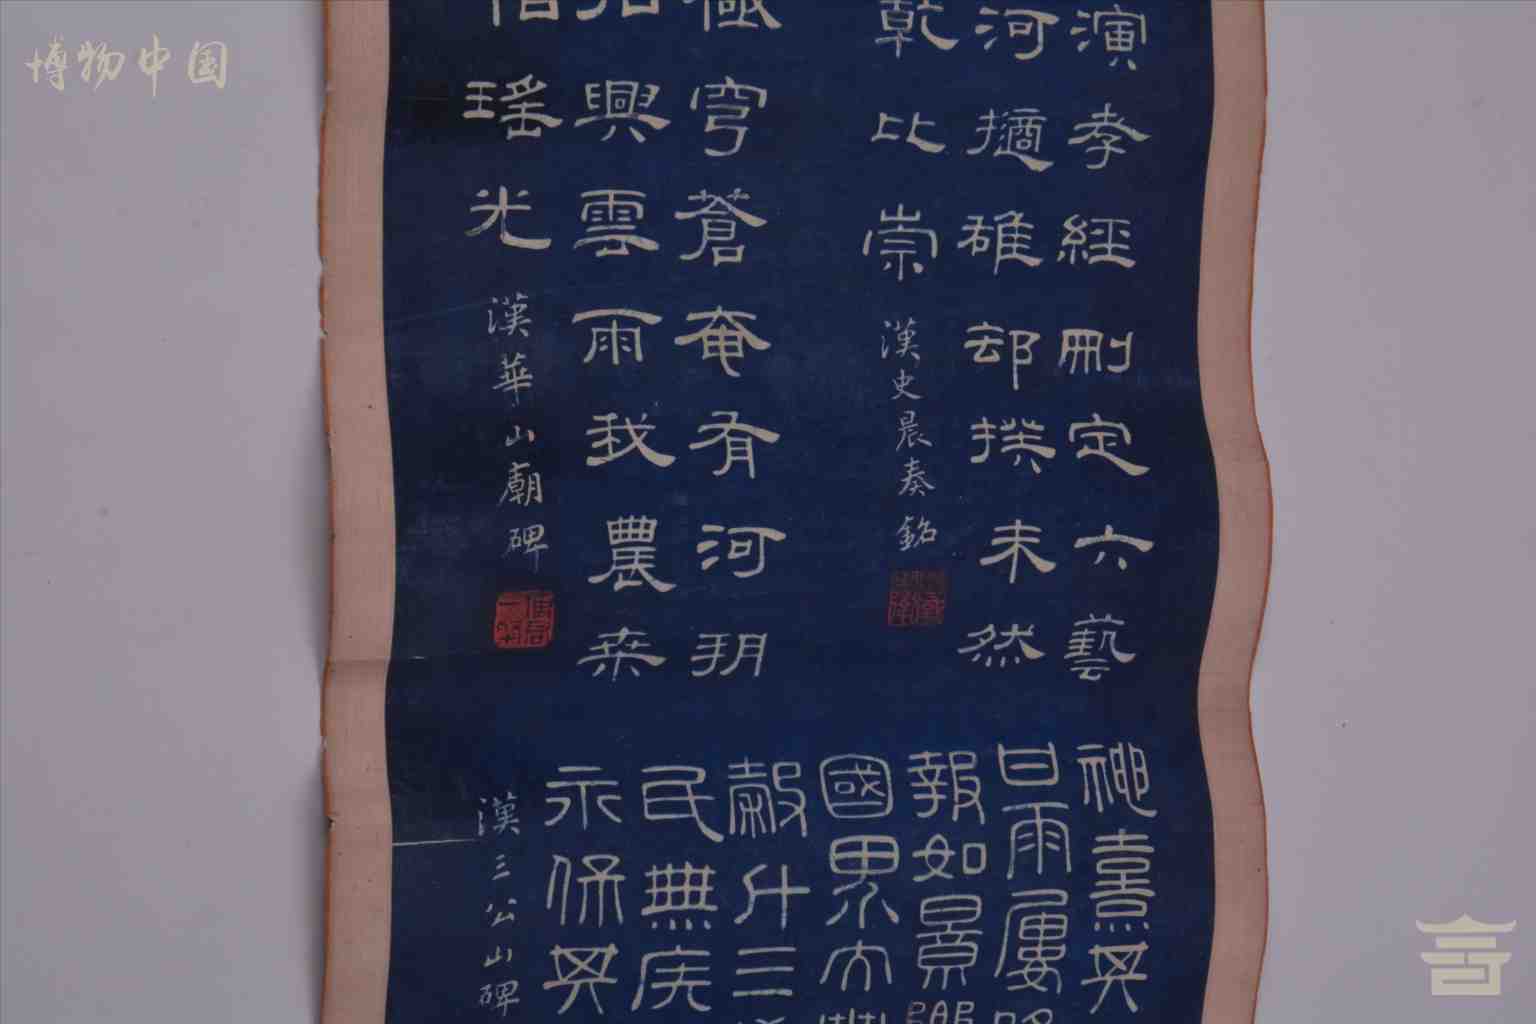 博物中国
演孝經刪定六藝
河擿雒却揆未然
乾比崇
漢史晨奏銘
極穹蒼奄有河朔
興雲雨我農桑
瑤光
漢華山廟碑
神熹其
日雨屢
報如景
國界大豐
穀斗三
民無疾
永保其
漢三公山碑